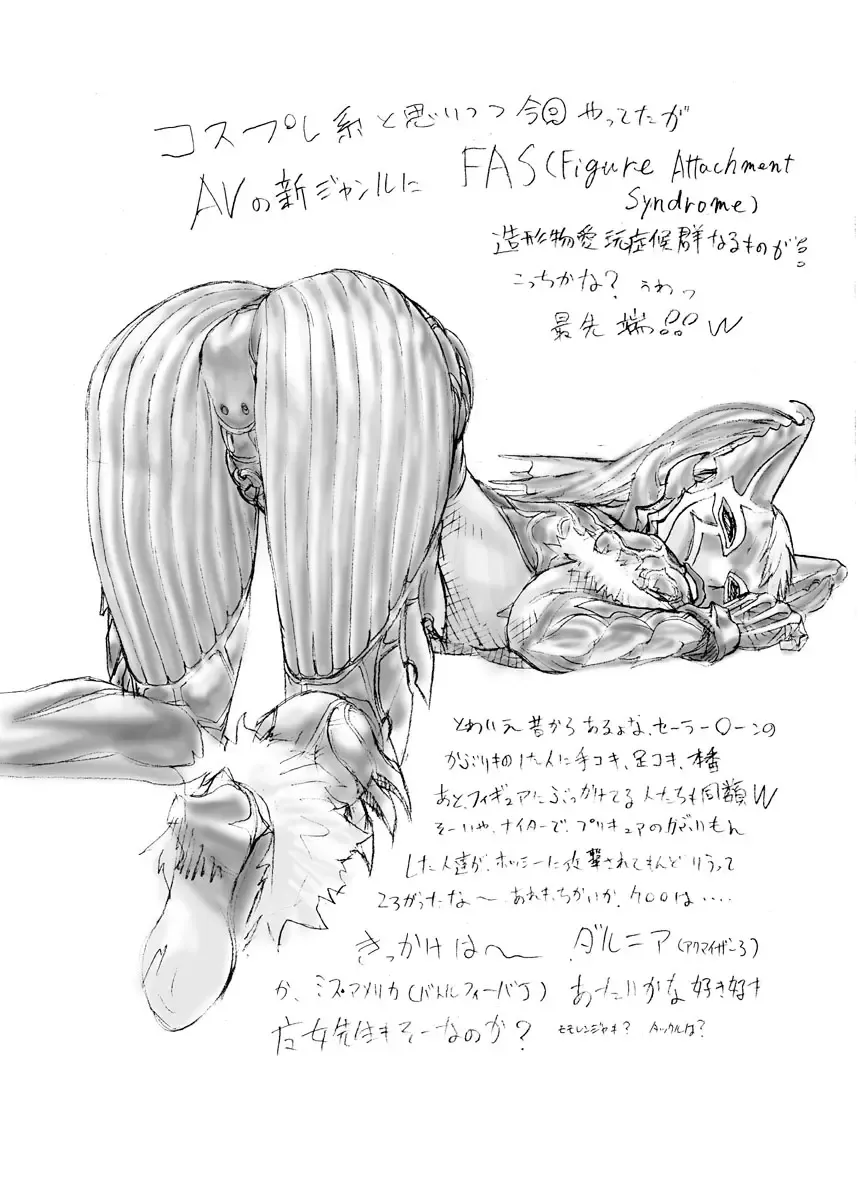 コスプレ系と思いつつ今回やってたが
AVの新ジャンルに FAS(Figure Attachment
Syndrome)
造形物愛玩症候群なるものが!?
こっちかな? うわっ
最先端!!! W
とわいえ昔からあるよな、セーラー〇ーンの
かぶりもの した人に手コキ、足コキ、本番
あと、フィギュアにぶっかけてる人たちも同類W
そーいや、ナイターで、プリキュアのかぶりもん
した人達が、ホッシーに襲撃されてもんどりうって
ころがってたな〜 あれもちかいか、ケロロは‥‥
きっかけは〜 ダルニア(アクマイザー3)
か、ミス・アメリカ(バトルフィーバーJ) あたりかな好き好き
女先生もそーなのか? モモレンジャキ? タックルは?